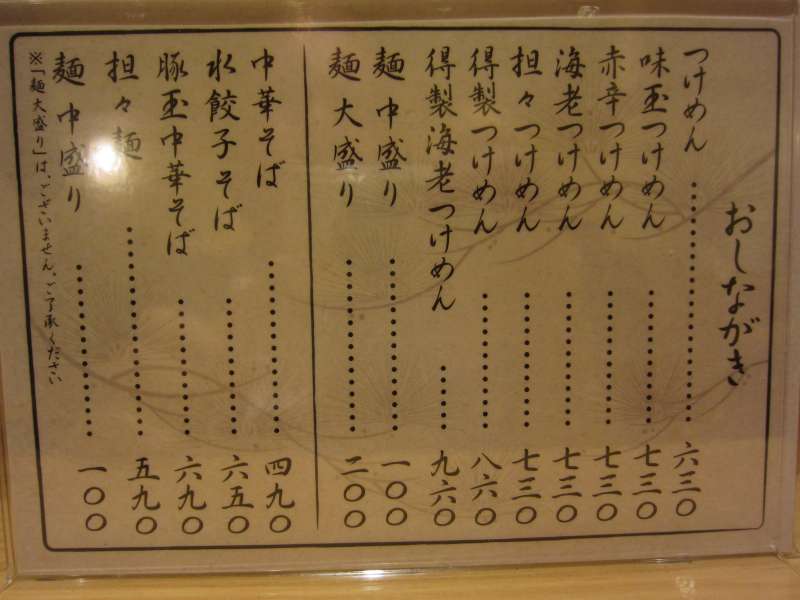 おしながき
つけめん 六三〇
味玉つけめん 七三〇
赤辛つけめん 七三〇
海老つけめん 七三〇
担々つけめん 七三〇
得製つけめん 八六〇
得製海老つけめん 九六〇
麺中盛り 一〇〇
麺大盛り 二〇〇
中華そば 四九〇
水餃子そば 六五〇
豚玉中華そば 六九〇
担々麺 五九〇
麺中盛り 一〇〇
※「麺大盛り」は、ございません。ご了承ください